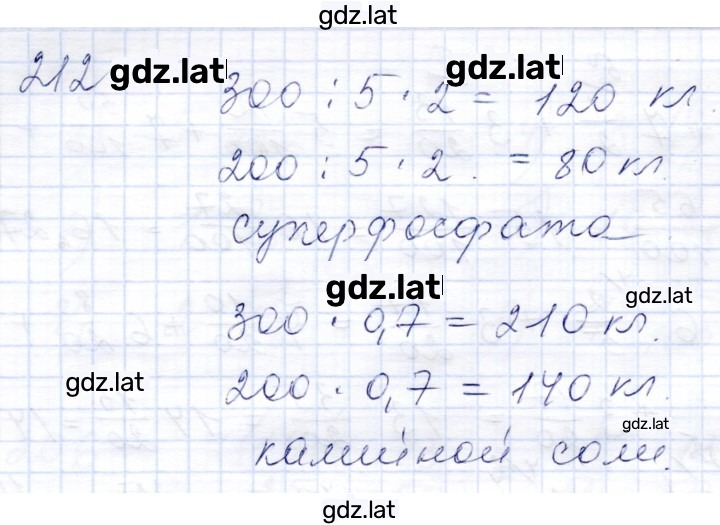 gdz.lat
212 gdz.lat 300 : 5 · 2 = 120 кг. gdz.lat
200 : 5 · 2. = 80 кг.
суперфосфата
gdz.lat
gdz.lat
300 · 0,7 = 210 кг.
gdz.lat
200 · 0,7 = 140 кг.
gdz.lat
калийной соли.
gdz.lat